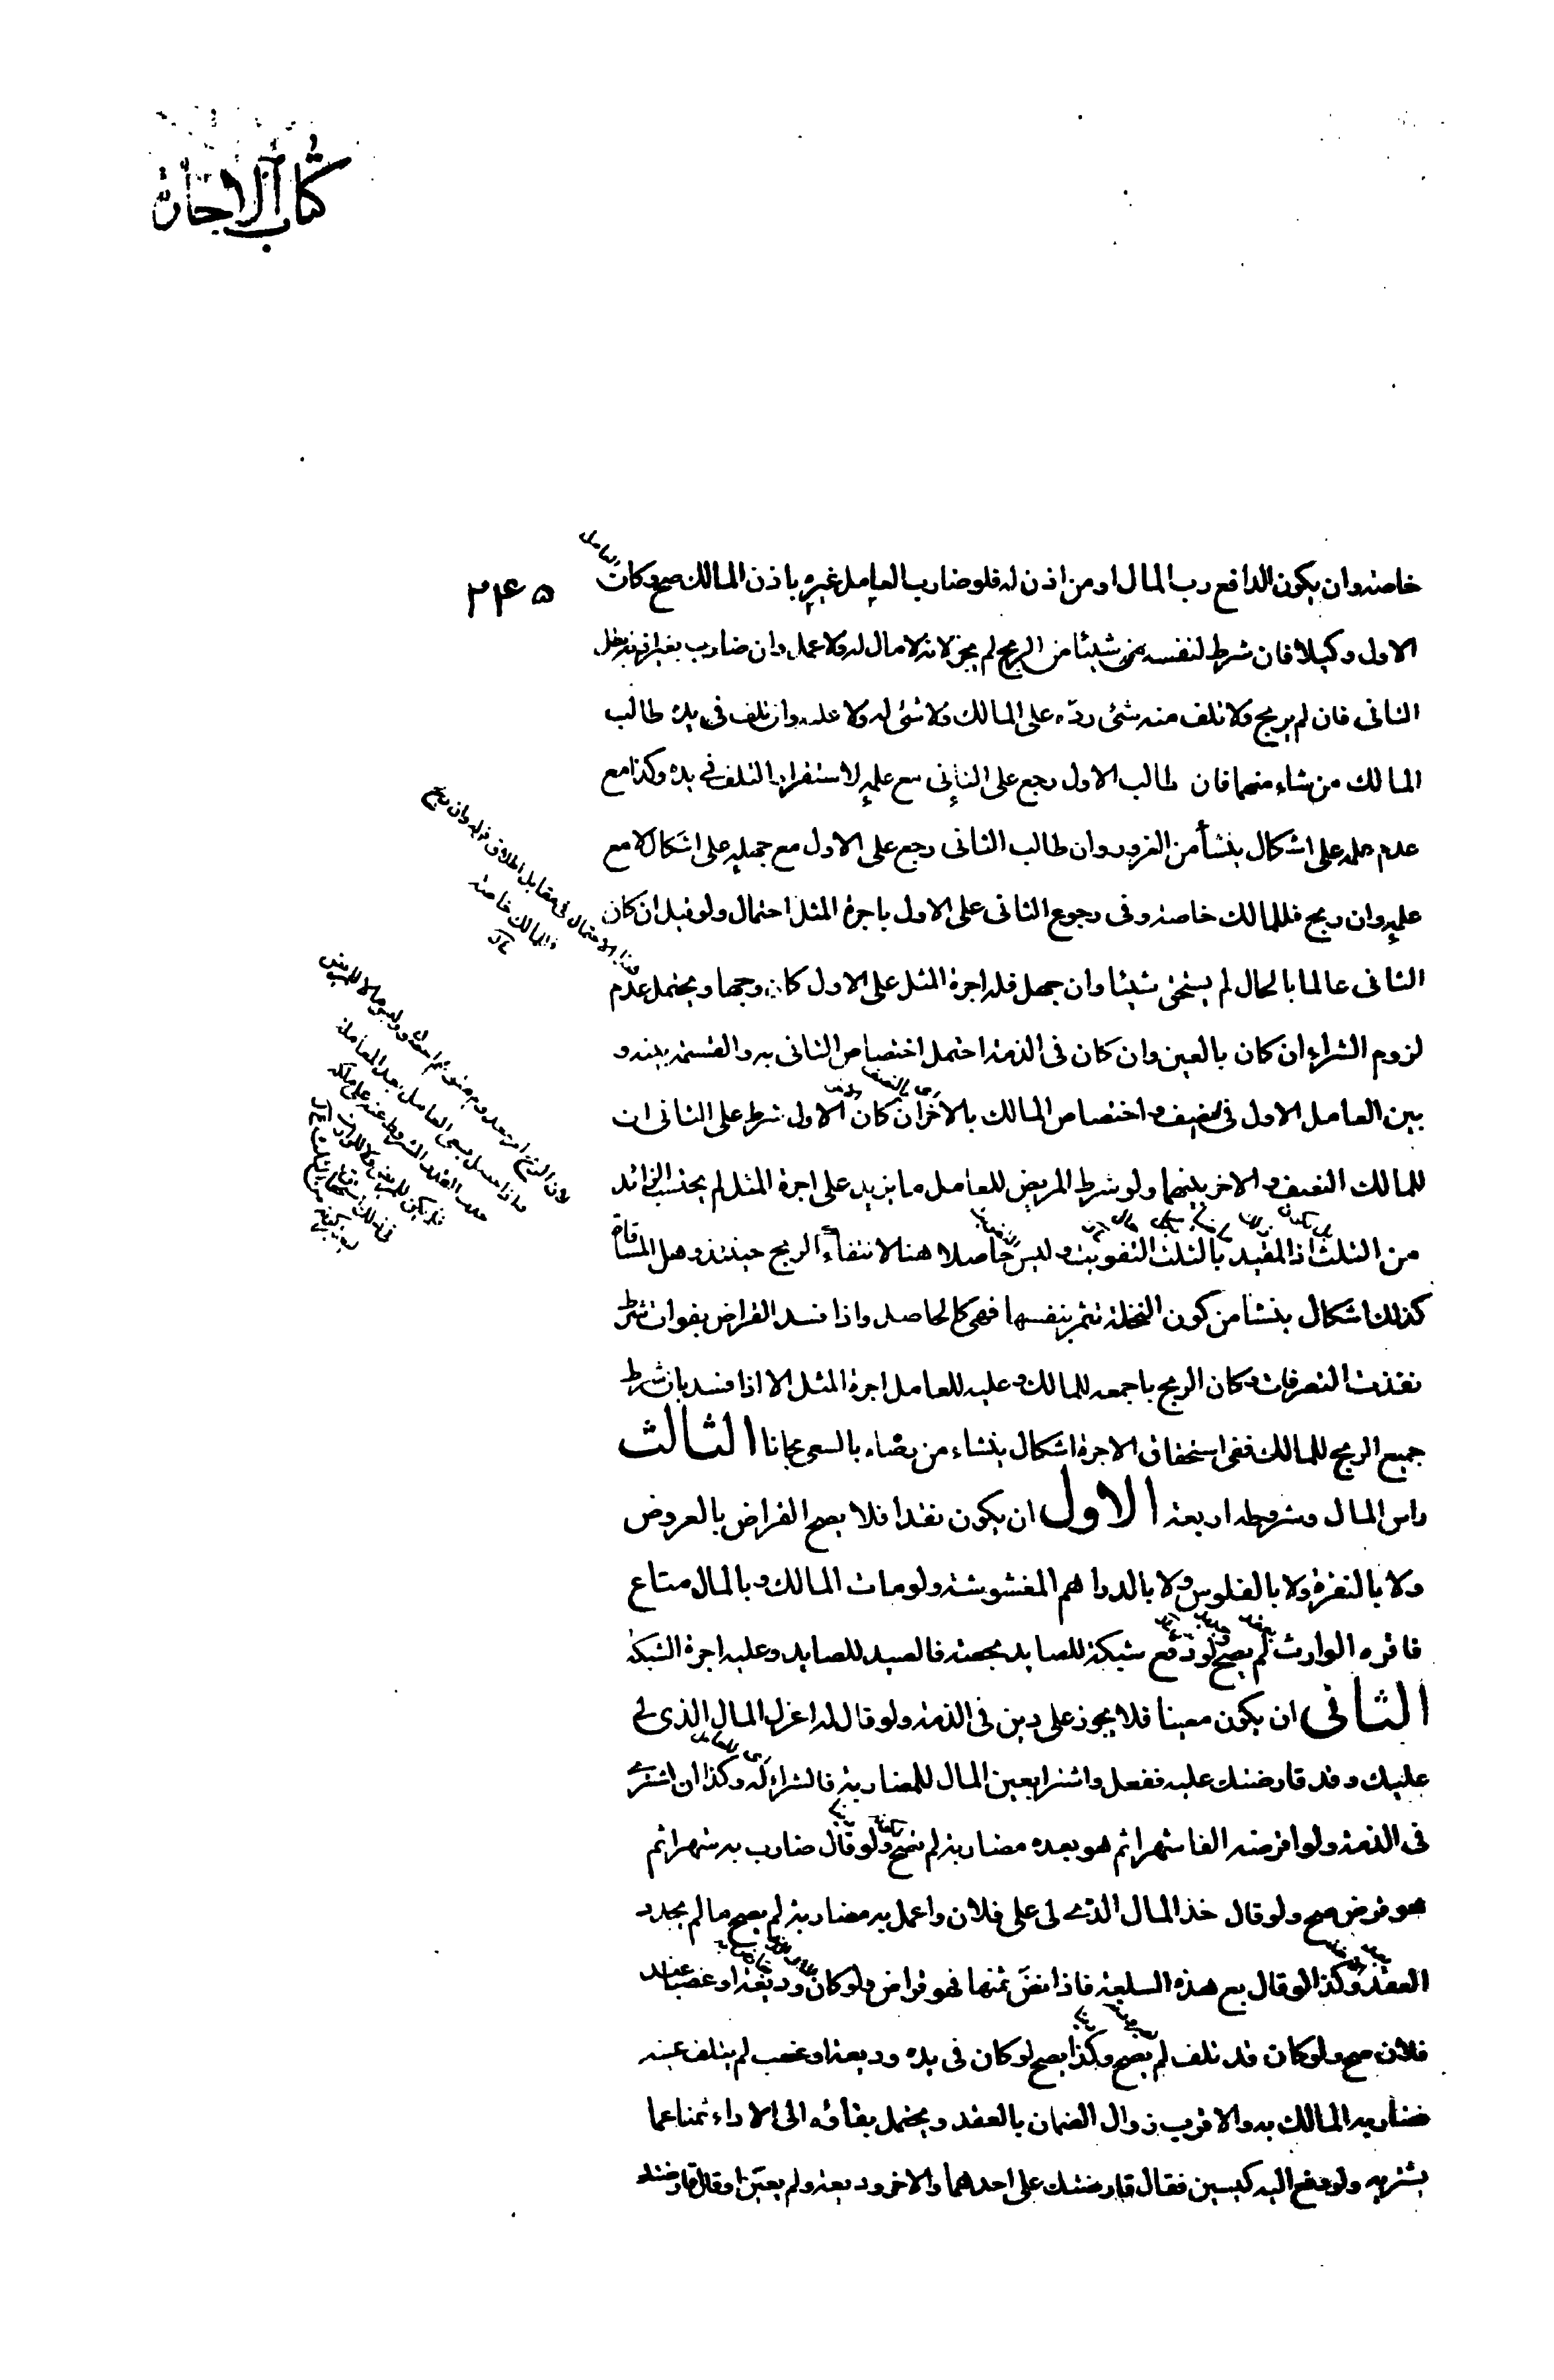 كتاب الاجارة
٢٤٥
خاصة وان يكون الدافع رب المال او من اذن له فلو ضارب العامل غيره باذن المالك صح وكان العامل
الاول وكيلا فان شرط لنفسه شيئا من الربح لم يجز لانه لا مال له ولا عمل وان ضارب بغير اذنه بطل
الثانى فان لم يربح ولا تلف منه شئ ردّه على المالك ولا شئ له ولا عليه وان تلف فى يده طالب
المالك من شاء منهما فان طالب الاول رجع على الثانى مع علمه لاستقرار التلف فى يده وكذا مع
عدم علمه على اشكال ينشأ من الغرور وان طالب الثانى رجع على الاول مع جهله على اشكال لا مع
علمه وان ربح فللمالك خاصة وفى رجوع الثانى على الاول باجرة المثل احتمال ولو قيل ان كان
الثانى عالما بالحال لم يستحق شيئا وان جهل فله اجرة المثل على الاول كان وجها ويحتمل عدم
لزوم الشراء ان كان بالعين وان كان فى الذمة احتمل اختصاص الثانى به والقسمة بينه و
بين العامل الاول فى نصيف واختصاص المالك بالاخر ان كان الاول شرط على الثانى ان
للمالك النصيف والاخر بينهما ولو شرط المريض للعامل ما يزيد على اجرة المثل لم يحتسب الزائد
من الثلث اذ المقيد بالثلث التفويت وليس حاصلا هنا لانتفاء الربح حينئذ وهل المساقاة
كذلك اشكال ينشا من كون النخلة تثمر بنفسها فهى كالحاصل واذا فسد القراض بفوات شرط
نفذت التصرفات وكان الربح باجمعه للمالك وعليه للعامل اجرة المثل الا اذا فسد بان شرط
جميع الربح للمالك ففى استحقاق الاجرة اشكال ينشاء من رضاه بالسعى مجانا الثالث
راس المال وشروطه اربعة الاول ان يكون نقدا فلا يصح القراض بالعروض
ولا بالنقرة ولا بالفلوس ولا بالدراهم المغشوشة ولو مات المالك وبالمال متاع
فاقره الوارث لم يصح ولو دفع شبكة للصايد بحصة فالصيد للصايد وعليه اجرة الشبكة
الثانى ان يكون معينا فلا يجوز على دين فى الذمة ولو قال له اعزل المال الذى لى
عليك وقد قارضتك عليه ففعل واشترا بعين المال للمضاربة فالشراء له وكذا ان اشترى
فى الذمة ولو اقرضه الفا شهرا ثم هو بعده مضاربة لم يصح ولو قال ضارب به شهرا ثم
هو قرض صح ولو قال خذ المال الذى لى على فلان واعمل به مضاربة لم يصح ما لم يجدد
العقد وكذا لو قال بع هذه السلعة فاذا نضّ ثمنها فهو قراض ولو كان وديعة او غصبا عند
فلان صح ولو كان قد تلف لم يصح وكذا يصح لو كان فى يده وديعة او غصب لم يتلف عينه
فضاربه المالك به والاقرب زوال الضمان بالعقد ويحتمل بقاؤه الى الاداء ثمنا عما
يشتريه ولو دفع اليه كيسين فقال قارضتك على احدهما والاخر وديعة ولم يعيّن او قال قارضتك
هذا الاحتمال فى مقابل اطلاق قوله وان ربح
فللمالك خاصة